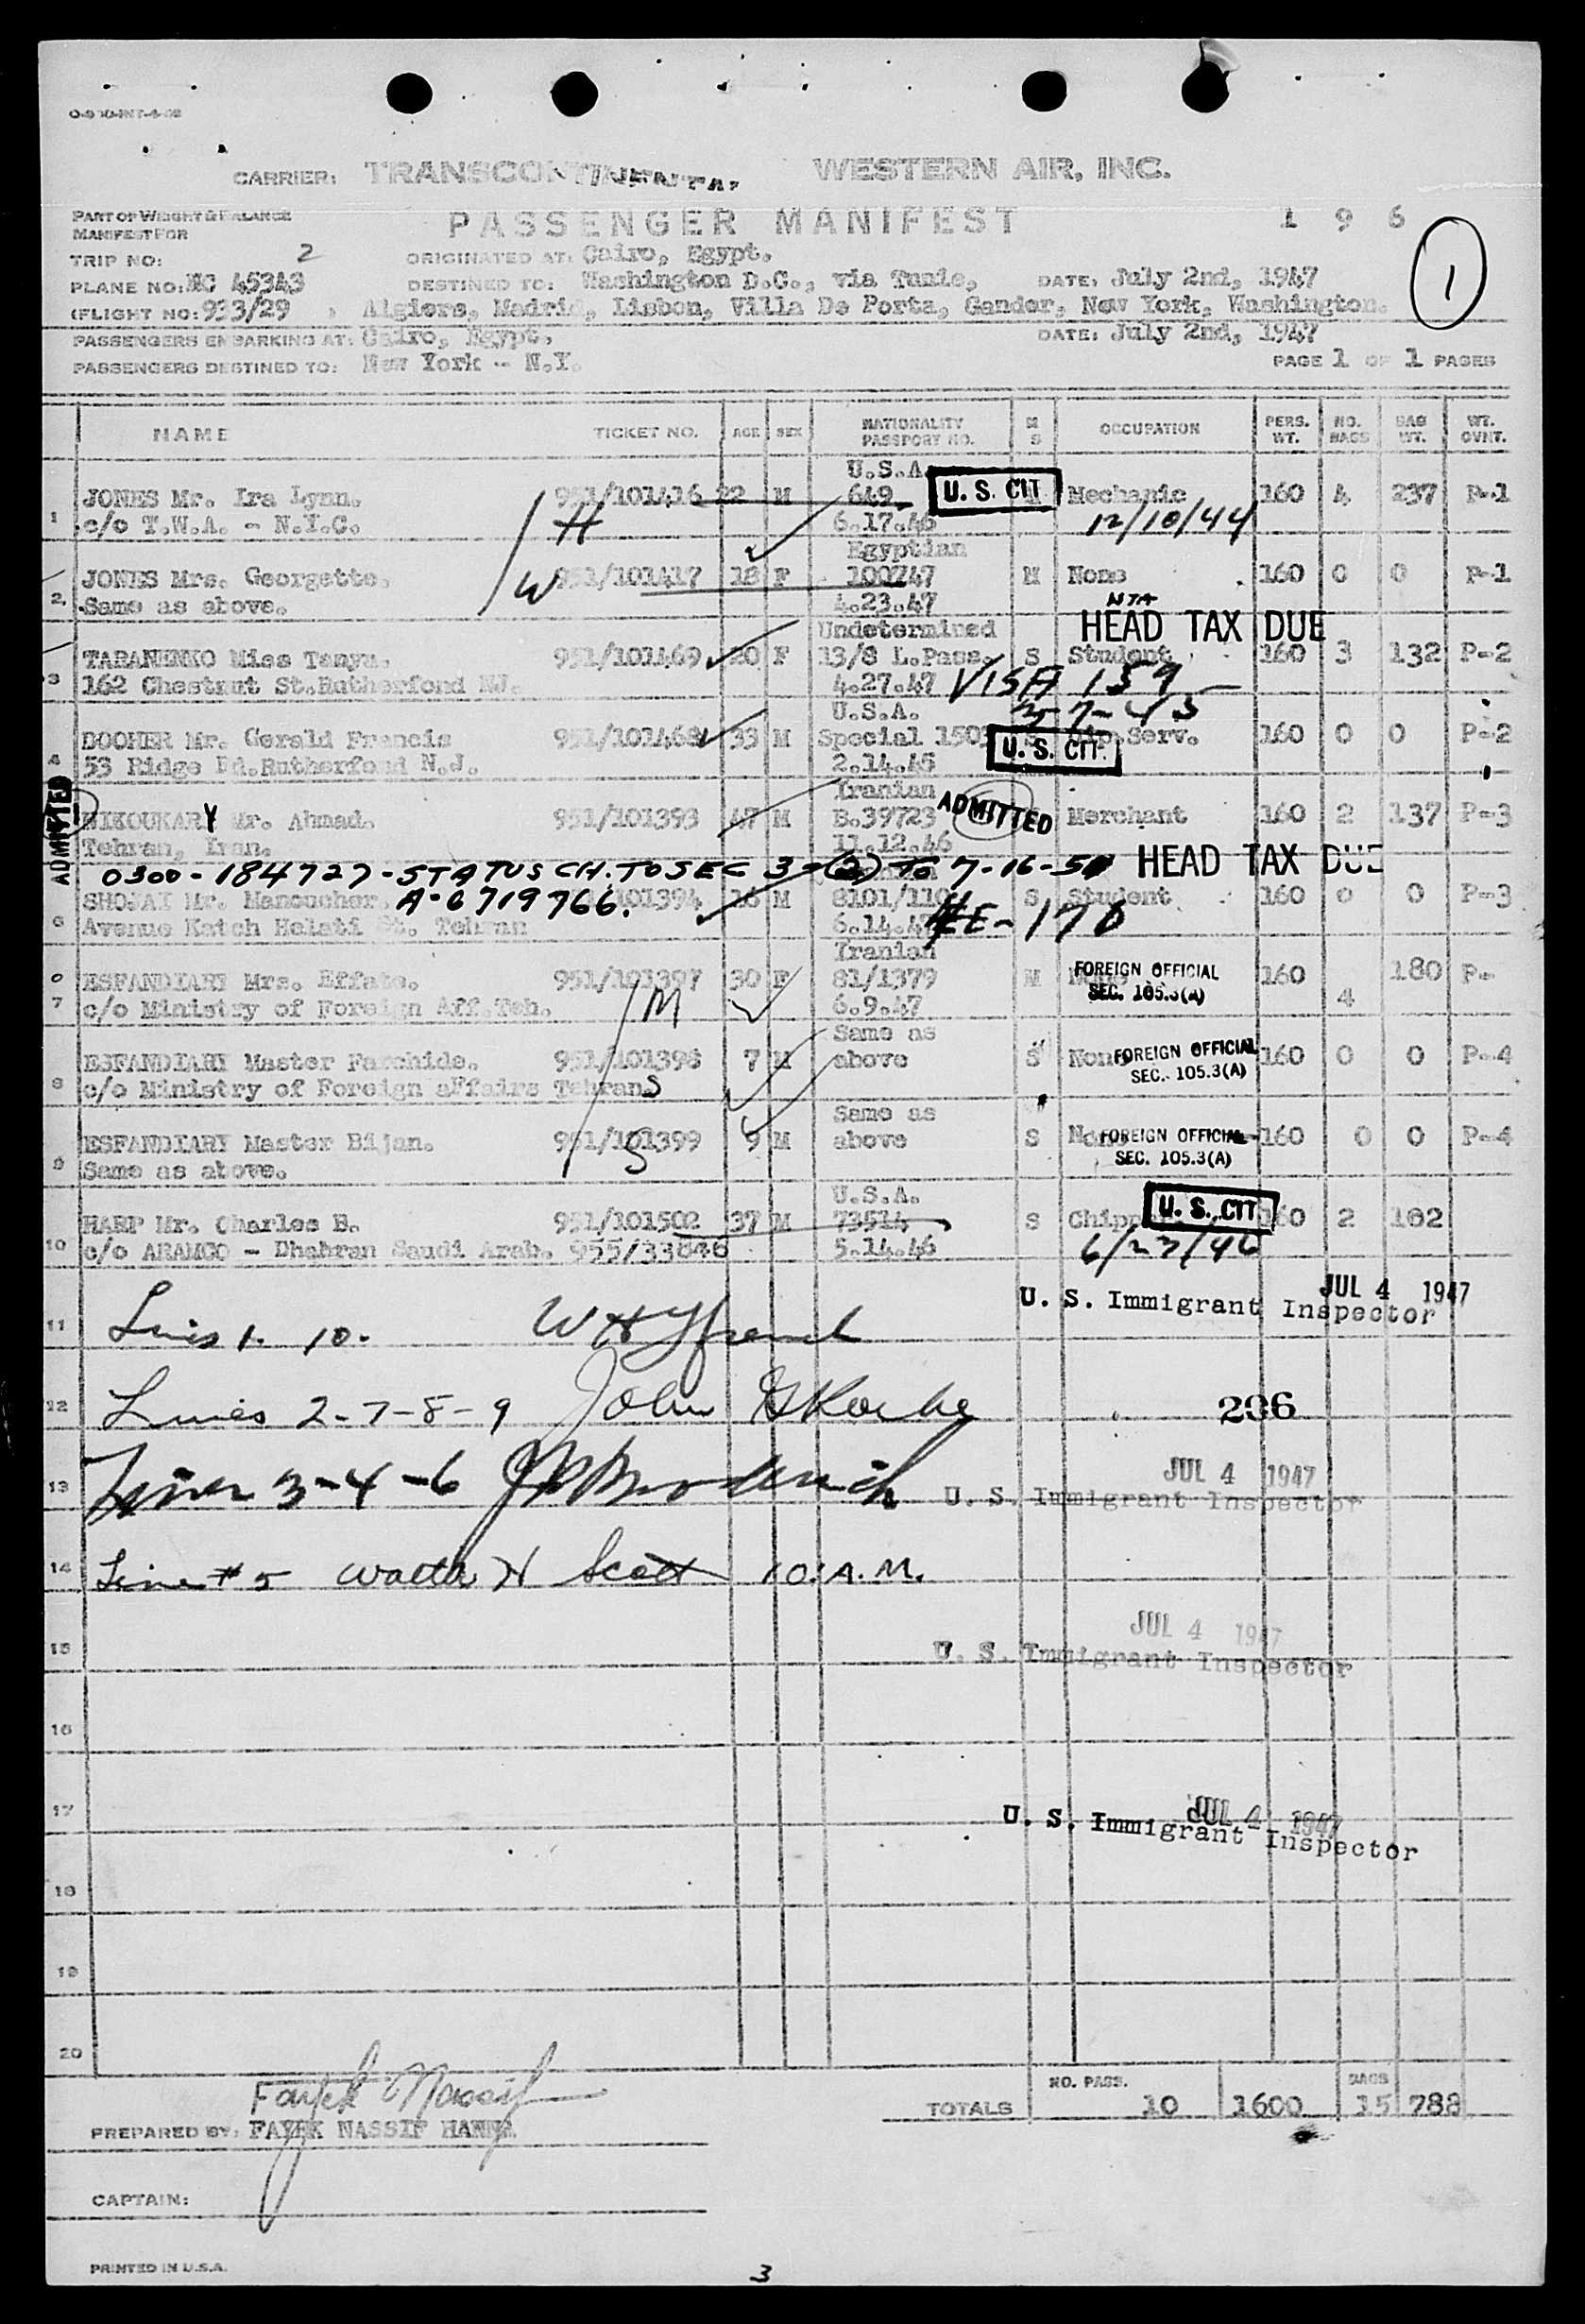 CARRIER: TRANSCONTINENTAL WESTERN AIR, INC.
PART OF WEIGHT & BALANCE
MANIFEST FOR
PASSENGER MANIFEST 1 9 6
1
TRIP NO: 2 ORIGINATED AT: Cairo, Egypt.
PLANE NO: NC 45343 DESTINED TO: Washington D.C., via Tunis, DATE: July 2nd, 1947
(FLIGHT NO: 933/29 ) Algiers, Madrid, Lisbon, Villa De Porta, Gander, New York, Washington.
PASSENGERS EMBARKING AT: Cairo, Egypt. DATE: July 2nd, 1947
PASSENGERS DESTINED TO: New York - N.Y. PAGE 1 OF 1 PAGES
NAME TICKET NO. AGE SEX NATIONALITY PASSPORT NO. M S OCCUPATION PERS. WT. NO. BAGS BAG WT. WT. CVNT.
U.S.A.
1 JONES Mr. Ira Lynn. 951/101416 22 M 649 U. S. CIT Mechanic 160 4 237 P-1
c/o T.W.A. - N.Y.C. H 6.17.46 12/10/44
Egyptian
JONES Mrs. Georgette. W 951/101417 18 F 100747 M None 160 0 0 P-1
2. Same as above. 4.23.47
NTA
HEAD TAX DUE
Undetermined
TARANENKO Miss Tanya. 951/101469 20 F 13/8 L.Pass. S Student 160 3 132 P-2
3 162 Chestnut St.Rutherford NJ. 4.27.47 VISA 159
U.S.A.
BOOHER Mr. Gerald Francis 951/101468 33 M Special 150 Serv. 160 0 0 P-2
4 53 Ridge Rd.Rutherford N.J. 2.14.46 U. S. CIT.
Iranian
ADMITTED NIKOUKARY Mr. Ahmad. 951/101393 47 M B.39723 ADMITTED Merchant 160 2 137 P-3
Tehran, Iran. 11.12.46
0300-184727-STATUS CH. TO SEC 3-(2) TO 7-16-51 HEAD TAX DUE
A-6719766.
SHOJAI Mr. Manoucher. 101394 16 M 8101/110 S Student 160 0 0 P-3
6 Avenue Katch Helati St. Tehran 6.14.47 E-170
Iranian
ESFANDIARY Mrs. Effate. 951/101397 30 F 81/1379 M None FOREIGN OFFICIAL 160 4 180 P-
7 c/o Ministry of Foreign Aff.Teh. M 6.9.47 SEC. 105.3(A)
Same as
ESFANDIARY Master Farchide. 951/101398 7 M above S None FOREIGN OFFICIAL 160 0 0 P-4
8 c/o Ministry of Foreign affairs Tehran. S SEC. 105.3(A)
Same as
ESFANDIARY Master Bijan. 951/101399 9 M above S None FOREIGN OFFICIAL 160 0 0 P-4
9 Same as above. S SEC. 105.3(A)
U.S.A.
HARP Mr. Charles B. 951/101502 37 M 73514 S Chipper U. S. CIT 160 2 102
10 c/o ARAMCO - Dhahran Saudi Arab. 955/33846 5.14.46 6/27/46
JUL 4 1947
U. S. Immigrant Inspector
11 Lines 1. 10.
12 Lines 2-7-8-9 John 206
JUL 4 1947
13 Lines 3-4-6 U. S. Immigrant Inspector
14 Line # 5 Walter H Scott 10. A.M.
JUL 4 1947
15 U. S. Immigrant Inspector
16
17 JUL 4 1947
U. S. Immigrant Inspector
18
19
20
Fayek Nassif
NO. PASS. BAGS
TOTALS 10 1600 15 788
PREPARED BY: FAYEK NASSIF HANNA
CAPTAIN:
PRINTED IN U.S.A.
3